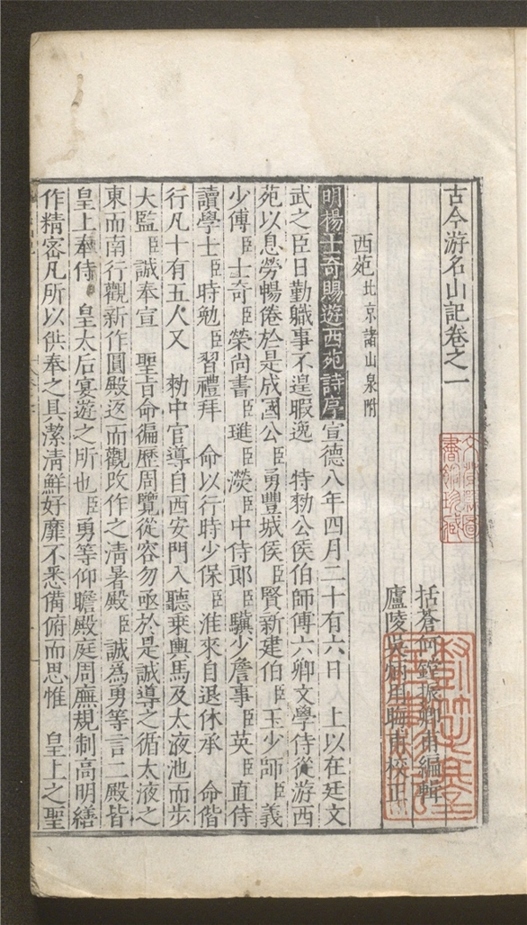 古今游名山記卷之一
括蒼何鏜振卿甫編輯
廬陵吳炳用晦甫校正
西苑北京諸山泉附
明楊士奇賜遊西苑詩序宣德八年四月二十有六日 上以在廷文
武之臣日勤職事不遑暇逸 特勑公侯伯師傅六卿文學侍從游西
苑以息勞暢倦於是成國公臣勇豐城侯臣賢新建伯臣玉少師臣義
少傅臣士奇臣榮尚書臣璡臣濙臣中侍郎臣驥少詹事臣英臣直侍
讀學士臣時勉臣習禮拜 命以行時少保臣淮來自退休承 命偕
行凡十有五人又 勑中官導自西安門入聽乗輿馬及太液池而步
大監臣誠奉宣 聖旨命徧歷周覽從容勿亟於是誠導之循太液之
東而南行觀新作圓殿返而觀改作之清暑殿臣誠為勇等言二殿皆
皇上奉侍 皇太后宴遊之所也臣勇等仰瞻殿庭周廡規制高明繕
作精密凡所以供奉之具潔清鮮好靡不悉備俯而思惟 皇上之聖